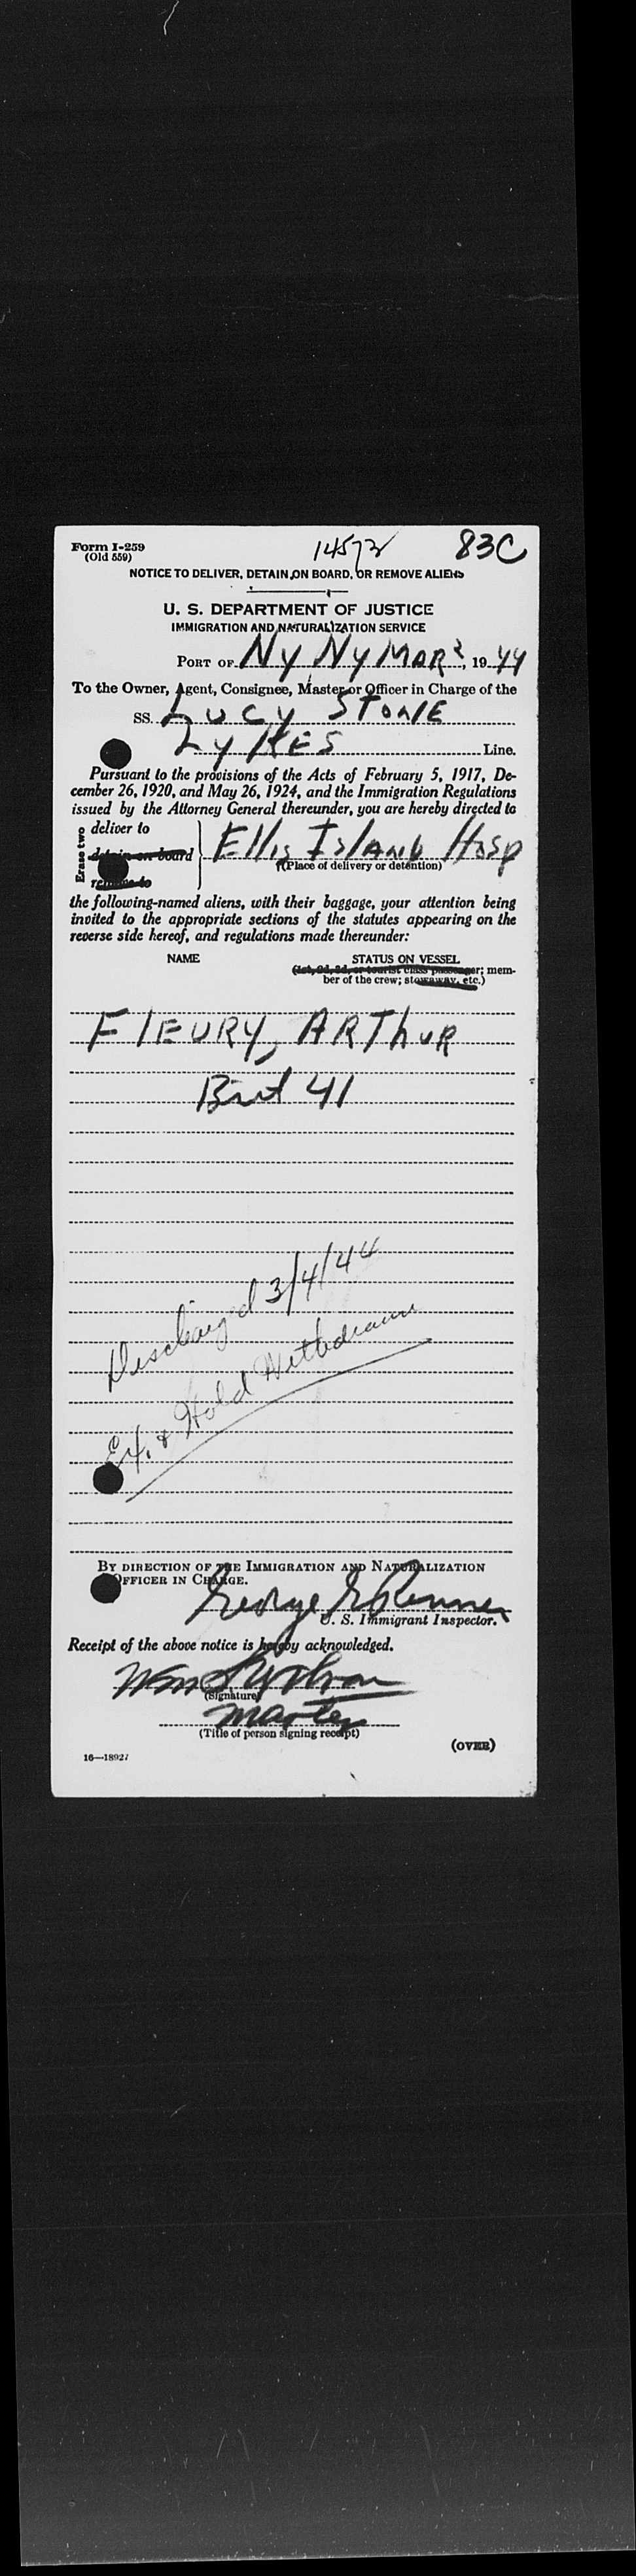 Form I-259
(Old 559)
14573
83C
NOTICE TO DELIVER, DETAIN ON BOARD, OR REMOVE ALIENS
U. S. DEPARTMENT OF JUSTICE
IMMIGRATION AND NATURALIZATION SERVICE
PORT OF NY NY MAR 2, 1944
To the Owner, Agent, Consignee, Master or Officer in Charge of the
SS. Lucy STONE
LyKES Line.
Pursuant to the provisions of the Acts of February 5, 1917, De-
cember 26, 1920, and May 26, 1924, and the Immigration Regulations
issued by the Attorney General thereunder, you are hereby directed to
Erase two
deliver to
detain on board
remove to
Ellis Island Hosp
(Place of delivery or detention)
the following-named aliens, with their baggage, your attention being
invited to the appropriate sections of the statutes appearing on the
reverse side hereof, and regulations made thereunder:
NAME
STATUS ON VESSEL
(1st, 2d, 3d, or tourist class passenger; mem-
ber of the crew; stowaway, etc.)
FlEURY, ARThUR
Brit 41
Discharged 3/4/44
Ex. & Hold Withdrawn
BY DIRECTION OF THE IMMIGRATION AND NATURALIZATION
OFFICER IN CHARGE.
George
U. S. Immigrant Inspector.
Receipt of the above notice is hereby acknowledged.
Wm
(Signature)
Master
(Title of person signing receipt)
(OVER)
16—18927